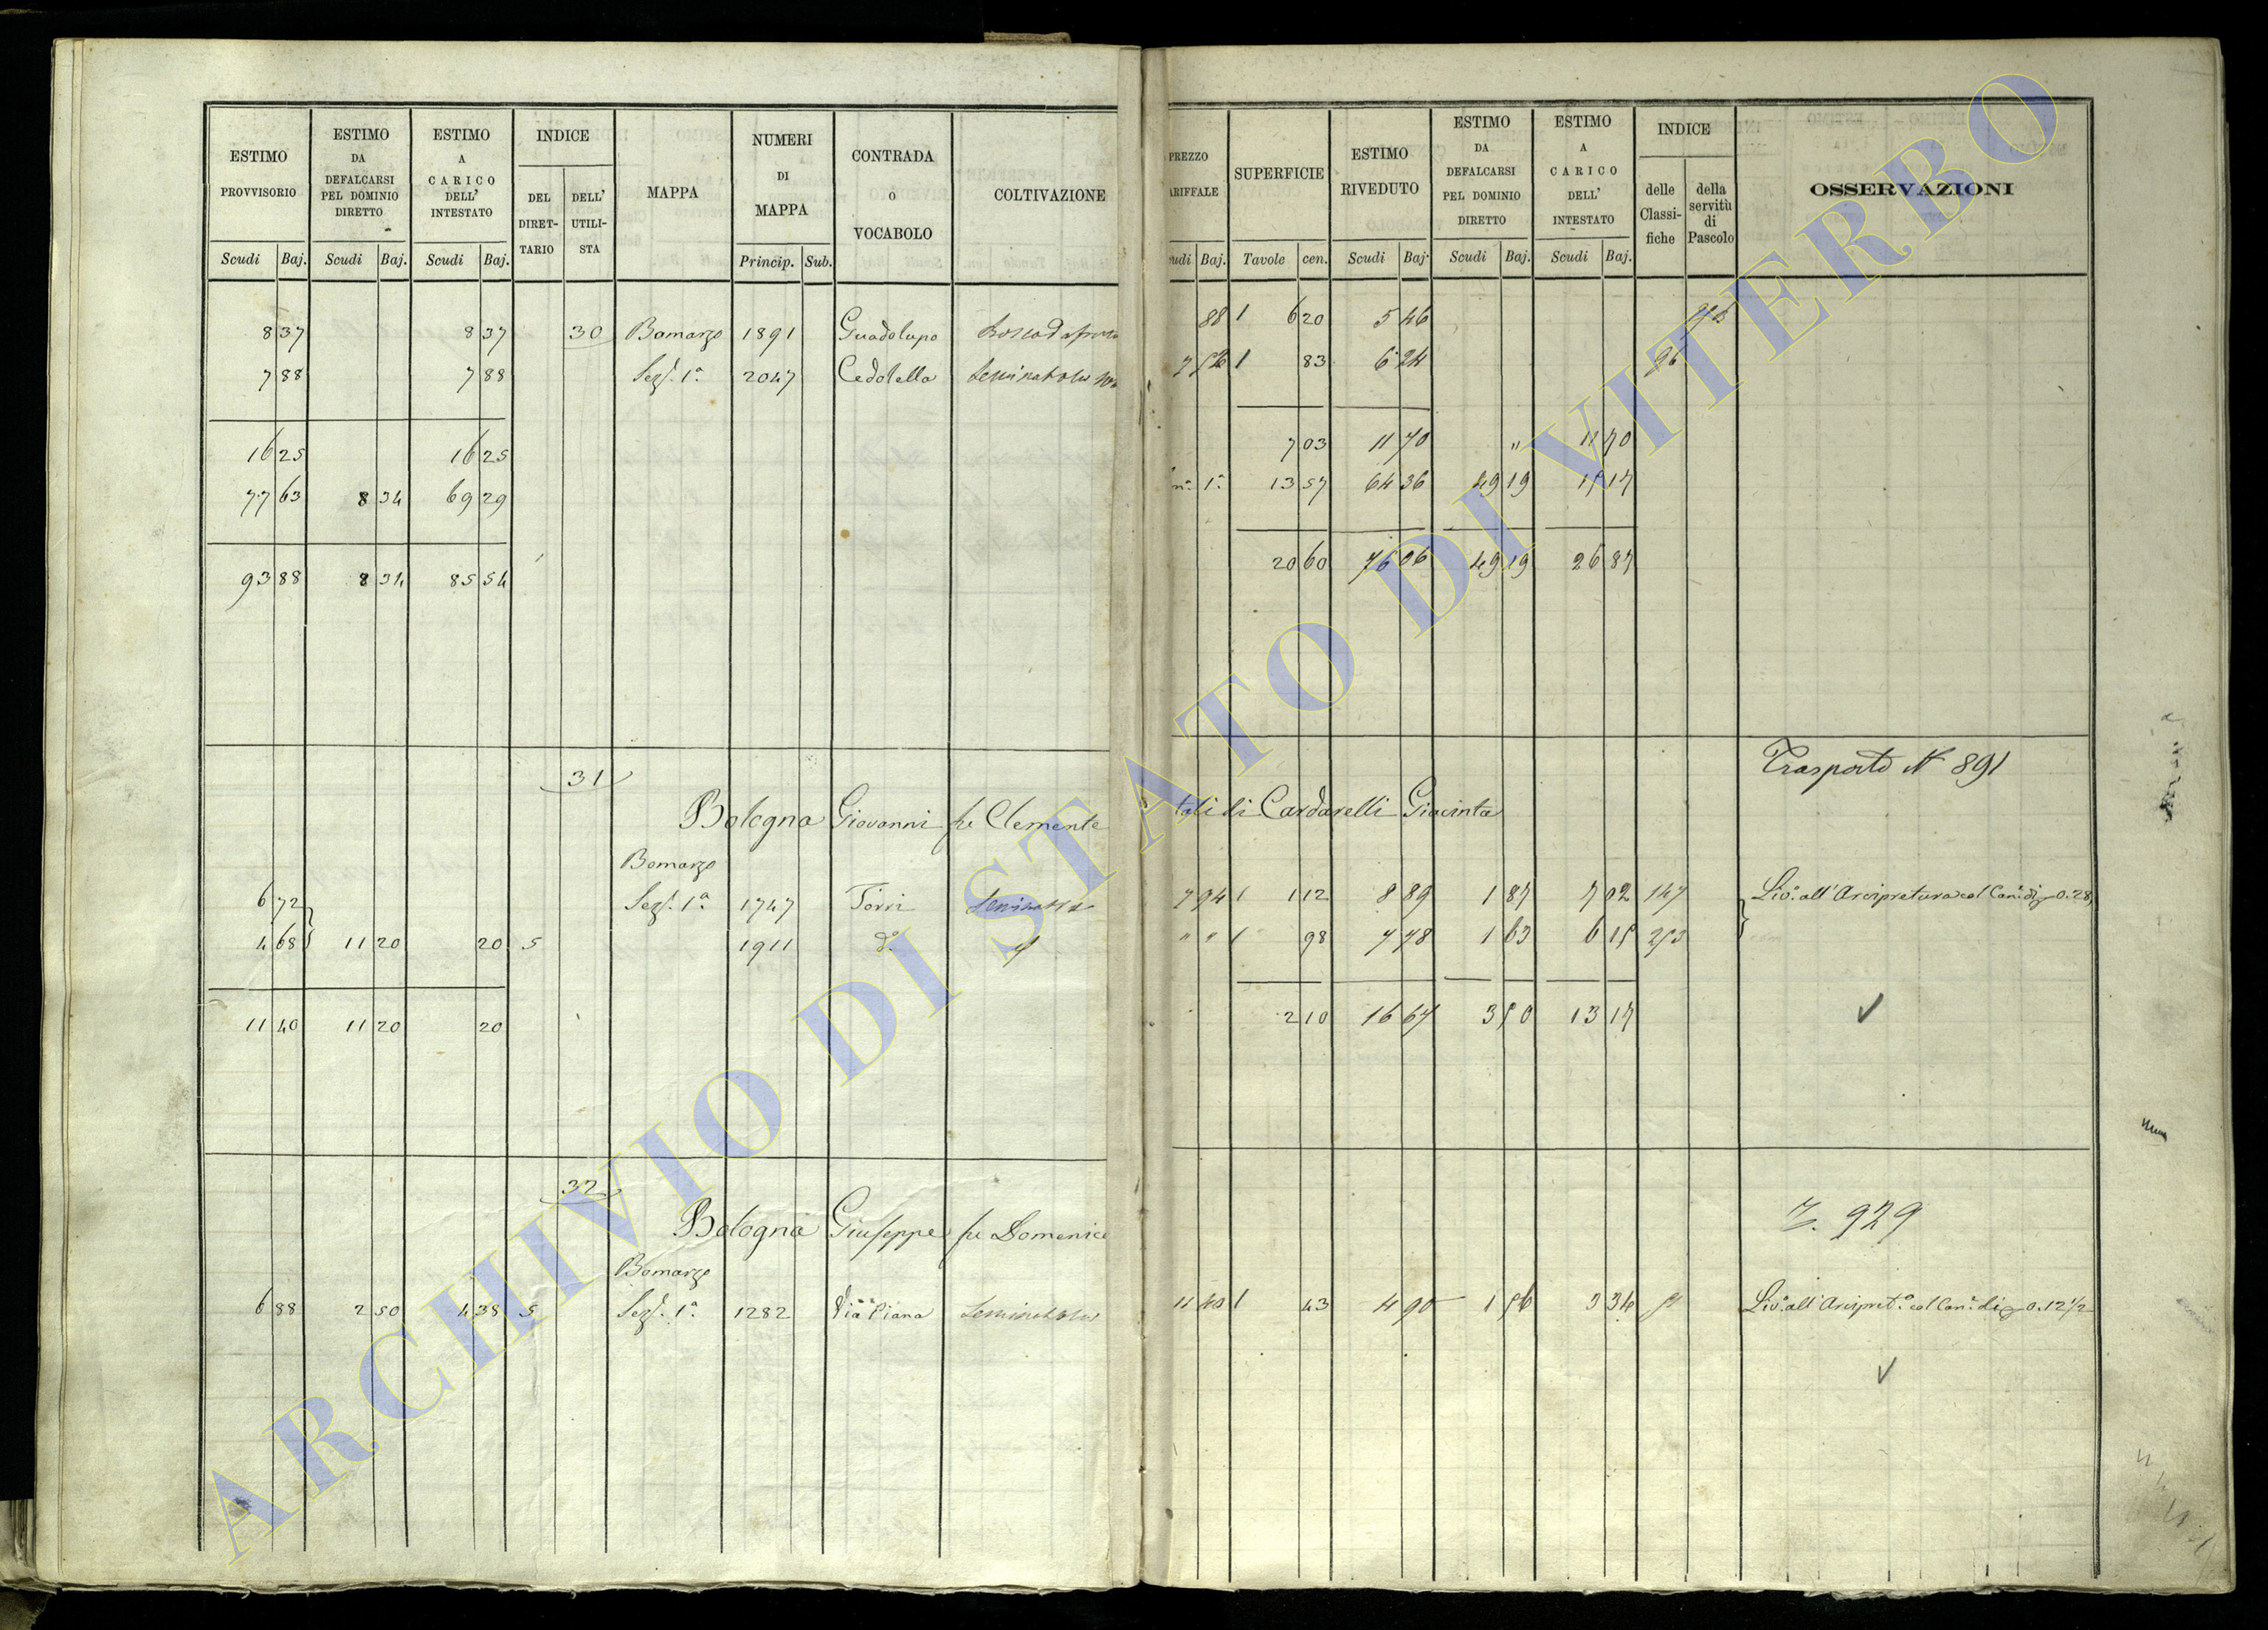 ESTIMO PROVVISORIO | ESTIMO DA DEFALCARSI PEL DOMINIO DIRETTO | ESTIMO A CARICO DELL' INTESTATO | INDICE | MAPPA | NUMERI DI MAPPA | CONTRADA O VOCABOLO | COLTIVAZIONE
DEL DIRET-TARIO | DELL' UTILI-STA
Scudi | Baj. | Scudi | Baj. | Scudi | Baj. | Princip. | Sub.
8 37 | 8 37 | 30 | Bomarzo | 1891 | Guadolupo
7 88 | 7 88 | Sezſ. 1ª | 2047 | Cedolella | Seminativo
16 25 | 16 25
77 63 | 8 34 | 69 29
93 88 | 8 34 | 85 54
31
Bologna Giovanni fu Clemente
Bomarzo
6 72 | Sezſ. 1ª | 1747 | Torri
4 68 | 11 20 | 20 | 5 | 1911 | dº
11 40 | 11 20 | 20
32
Bologna Giuseppe fu Domenico
Bomarzo
6 88 | 2 50 | 4 38 | 5 | Sezſ. 1ª | 1282 | Via Piana | Seminativo
PREZZO ARIFFALE | SUPERFICIE | ESTIMO RIVEDUTO | ESTIMO DA DEFALCARSI PEL DOMINIO DIRETTO | ESTIMO A CARICO DELL' INTESTATO | INDICE | OSSERVAZIONI
delle Classi-fiche | della servitù di Pascolo
udi | Baj. | Tavole | cen. | Scudi | Baj. | Scudi | Baj. | Scudi | Baj.
88 | 1 | 6 20 | 5 46
7 56 | 1 | 83 | 6 24 | 96
7 03 | 11 70 | " | 11 70
1ª | 13 57 | 64 36 | 49 19 | 15 17
20 60 | 76 06 | 49 19 | 26 87
Trasporto N 891
tali di Cardarelli Giacinta
7 94 | 1 | 1 12 | 8 89 | 1 87 | 7 02 | 147 | Livº all' Arcipretura col Canº di 0.28
" " | 1 | 98 | 7 78 | 1 63 | 6 15 | 253
2 10 | 16 67 | 3 50 | 13 17
T. 929
11 40 | 1 | 43 | 4 90 | 1 56 | 3 34 | Livº all' Arcipretª col Canº di 0.12 1/2
ARCHIVIO DI STATO DI VITERBO